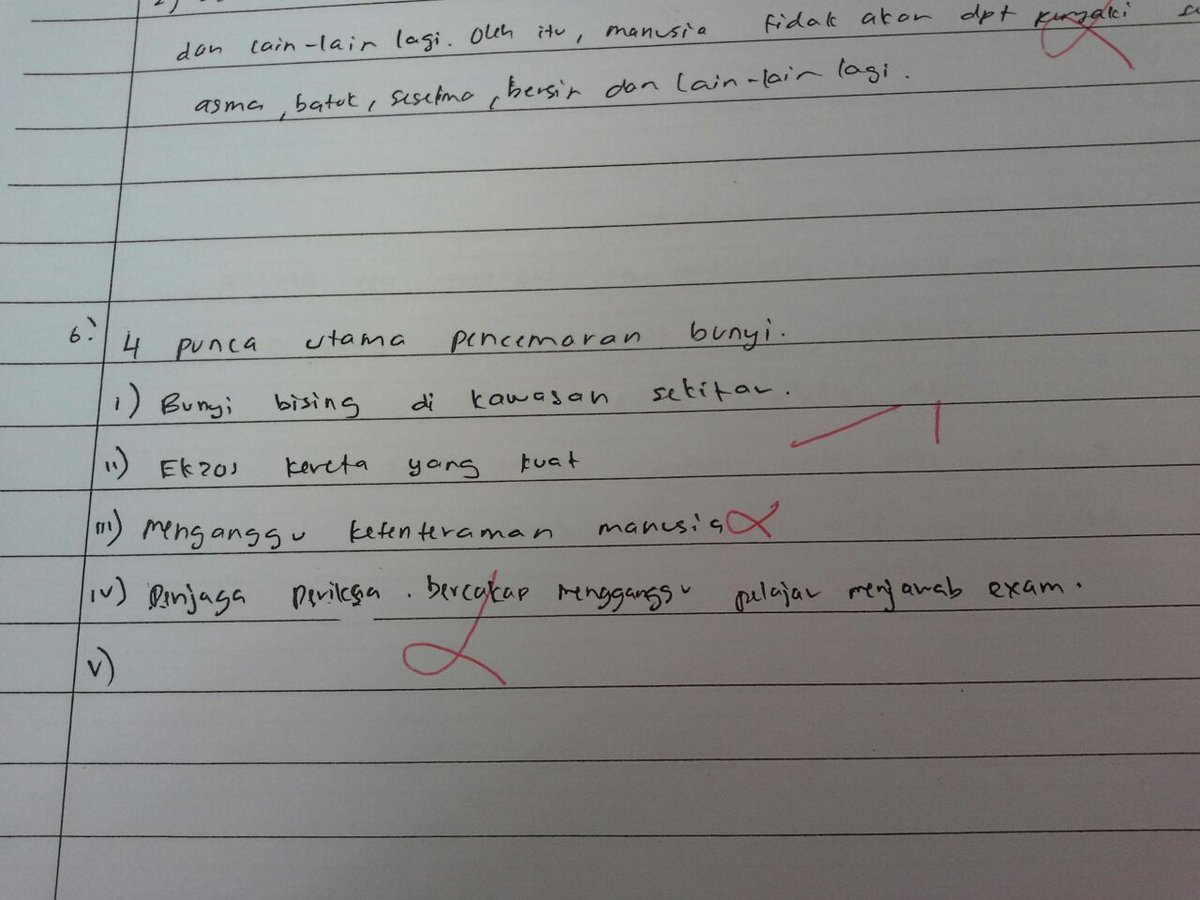 dan lain-lain lagi. Oleh itu, manusia tidak akan dpt
asma, batuk, seselma, bersin dan lain-lain lagi.
6) 4 punca utama pencemaran bunyi.
i) Bunyi bising di kawasan sekitar.
1
ii) Ekzos kereta yang kuat
iii) Menganggu ketenteraman manusia
iv) Penjaga periksa. bercakap mengganggu pelajar menjawab exam.
v)